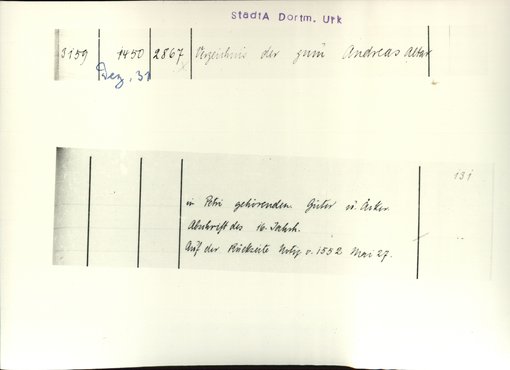 StadtA Dortm. Urk
3159 1450 2867 Verzeichnis der zum Andreas Altar
Dez, 31
131
in Petri gehörenden Güter u. Äcker.
Abschrift des 16. Jahrh.
Auf der Rückseite Notiz v. 1552 Mai 27.